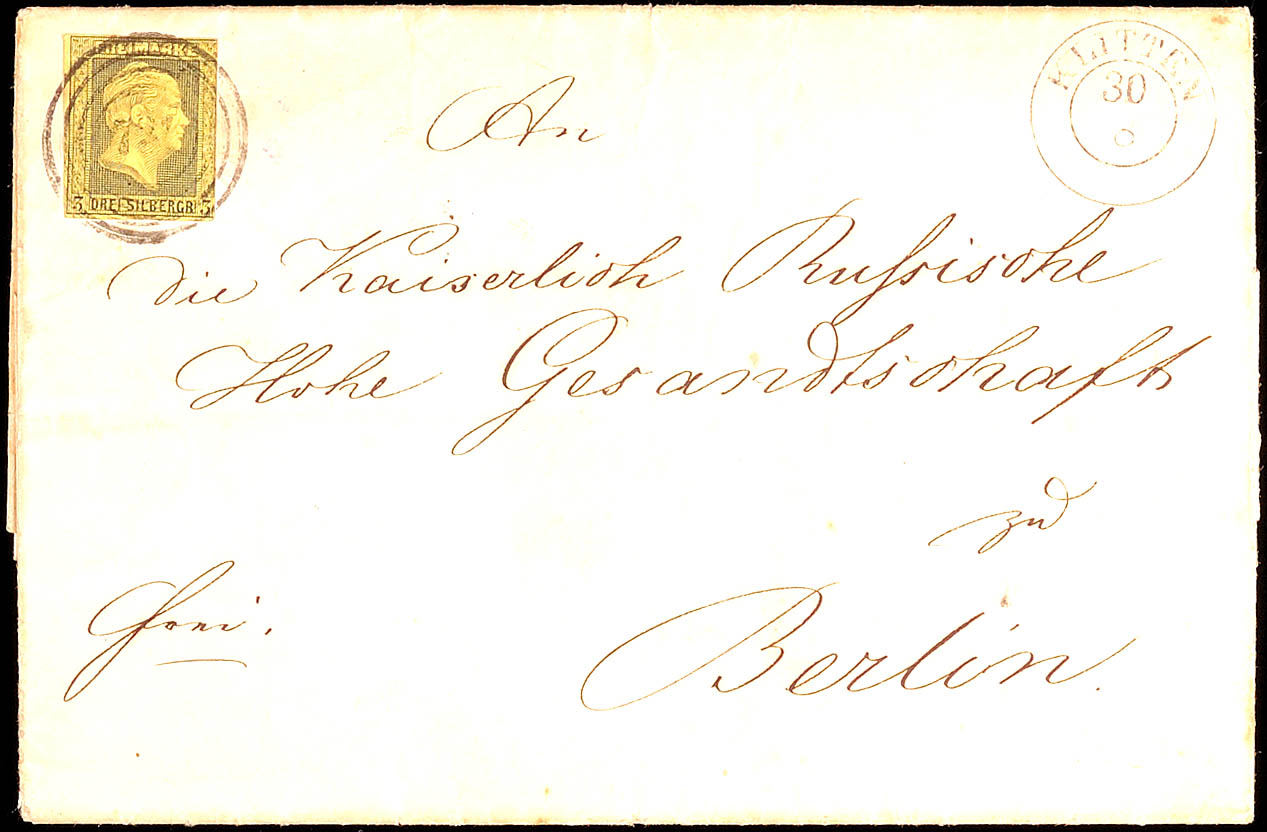 FREIMARKE
3 DREI SILBERGR 3
KLITTEN
30
8
An
die Kaiserlich Russische
Hohe Gesandtschaft
zu
Berlin.
frei.